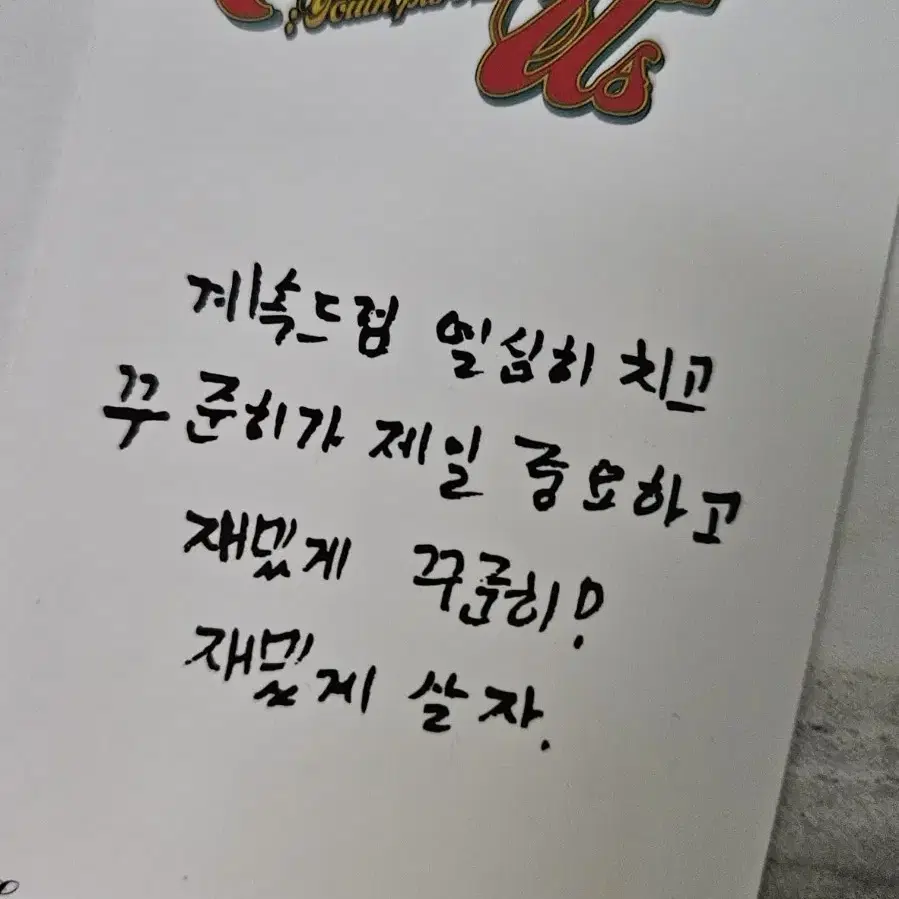 Us
계속드럼 열심히 치고
꾸준히가 제일 중요하고
재밌게 꾸준히!
재밌게 살자.